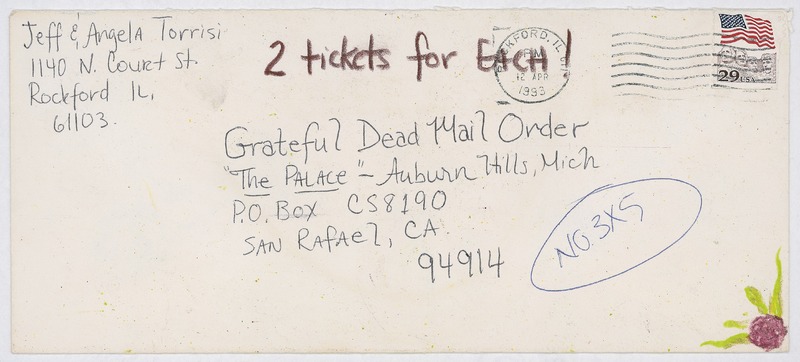 Jeff & Angela Torrisi
1140 N. Court St.
Rockford IL,
61103.
2 tickets for EACH!
ROCKFORD, IL
PM
12 APR
1993
29 USA
Grateful Dead Mail Order
"The PALACE" - Auburn Hills, Mich
P.O. Box CS8190
SAN RAFAEL, CA
94914
NO. 3X5